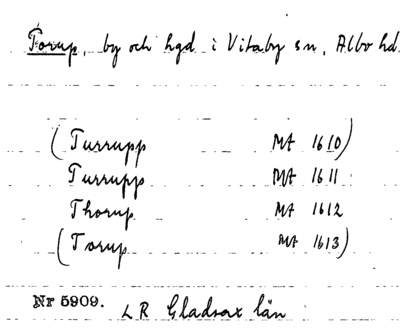 Torup, by och hgd i Vitaby sn, Albo hd.
(Turrupp MA 1610)
Turrupp MA 1611
Thorup MA 1612
(Torup MA 1613)
Nr 5909. LR Gladsax län